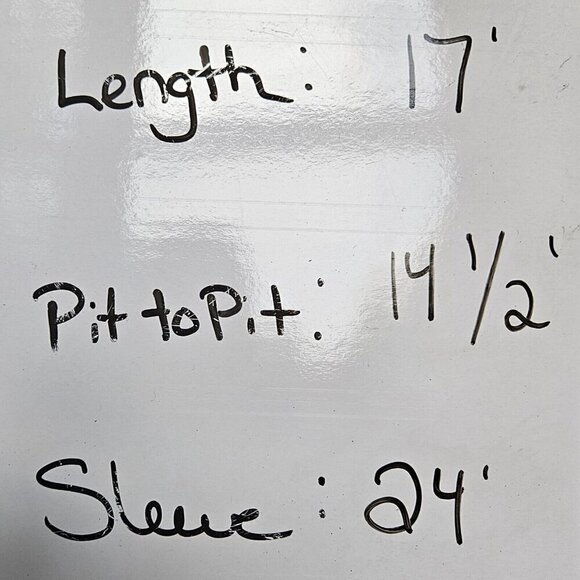 Length: 17'
Pit to Pit: 14 1/2'
Sleeve: 24'